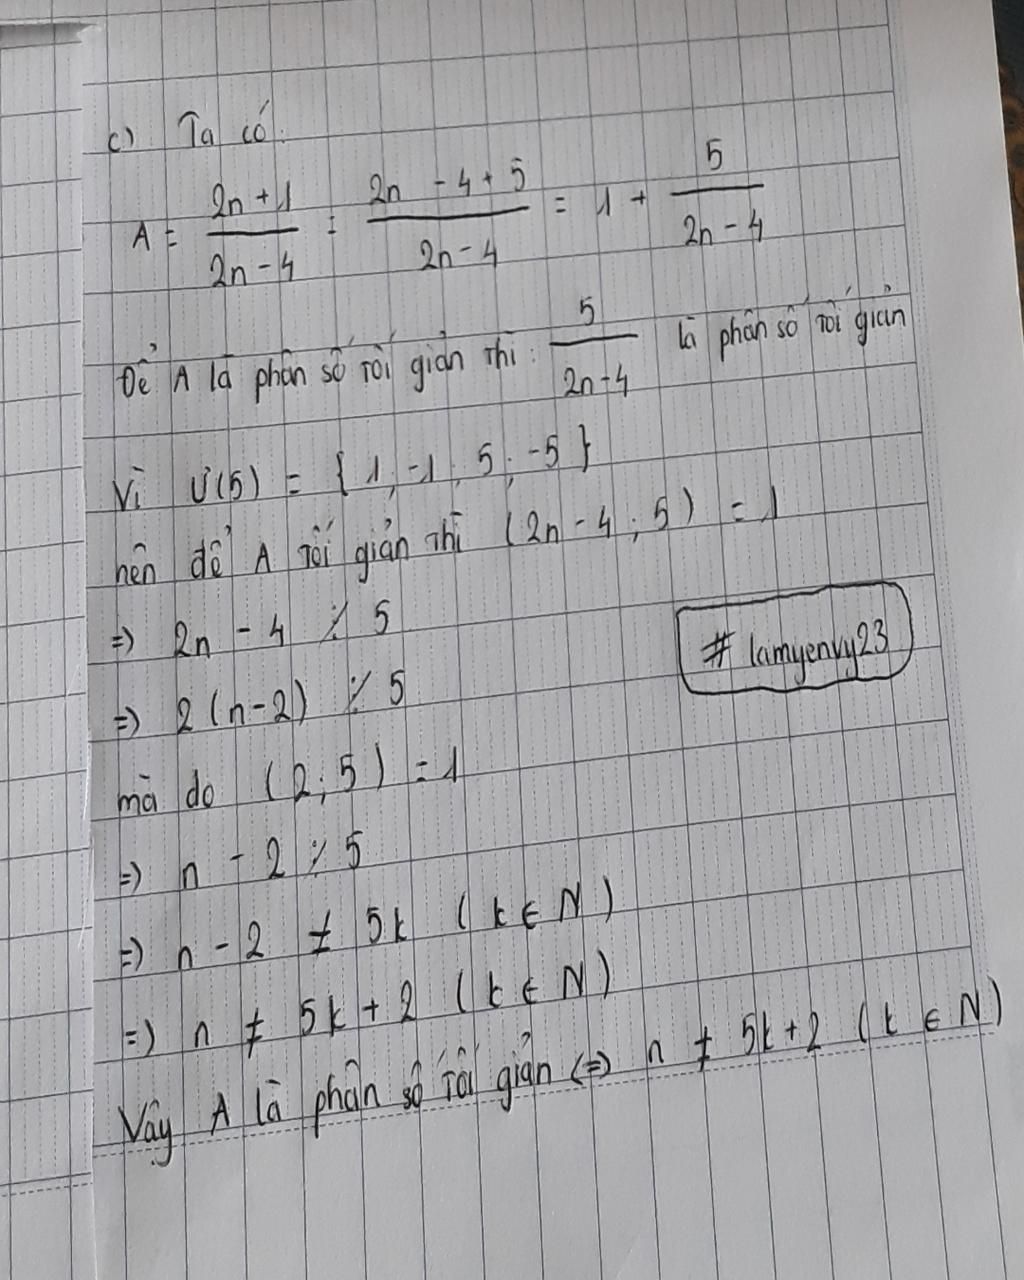 c) Ta có:
A = \frac{2n + 1}{2n - 4} = \frac{2n - 4 + 5}{2n - 4} = 1 + \frac{5}{2n - 4}
Để A là phân số tối giản thì: \frac{5}{2n - 4} là phân số tối giản
Vì Ư(5) = { 1; -1; 5; -5 }
nên để A tối giản thì (2n - 4; 5) = 1
=> 2n - 4 \not\vdots 5
=> 2(n - 2) \not\vdots 5
# lamyenvy23
mà do (2; 5) = 1
=> n - 2 \not\vdots 5
=> n - 2 ≠ 5k (k ∈ N)
=> n ≠ 5k + 2 (k ∈ N)
Vậy A là phân số tối giản <=> n ≠ 5k + 2 (k ∈ N)